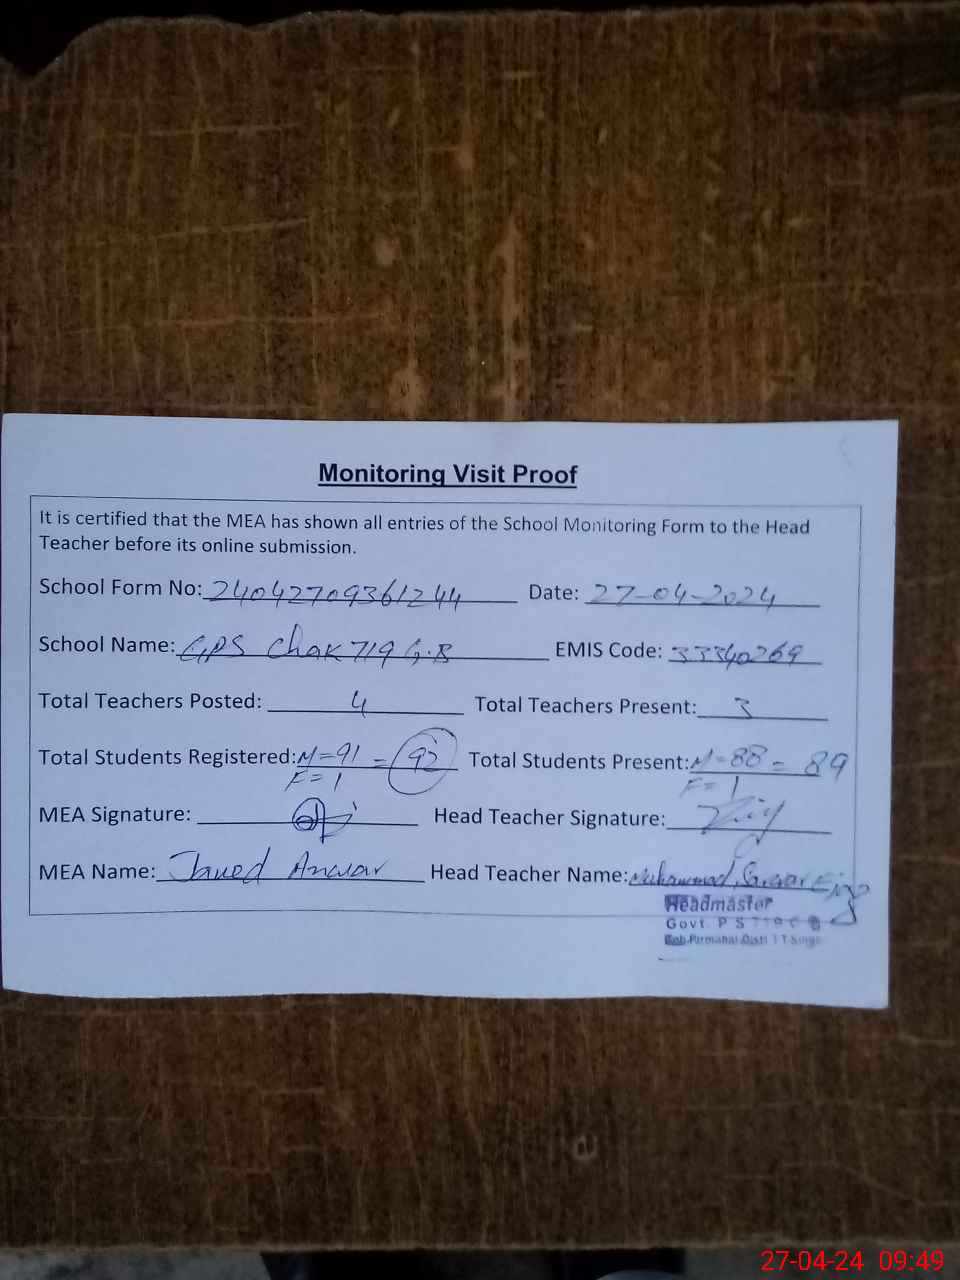 Monitoring Visit Proof
It is certified that the MEA has shown all entries of the School Monitoring Form to the Head
Teacher before its online submission.
School Form No: 24042709361244 Date: 27-04-2024
School Name: GPS Chak 719 G.B EMIS Code: 33340269
Total Teachers Posted: 4 Total Teachers Present: 3
Total Students Registered: M=91 = 92 Total Students Present: M=88 = 89
F=1 F=1
MEA Signature: Head Teacher Signature:
MEA Name: Javed Anwar Head Teacher Name: Muhammad Sarwar
Headmaster
Govt. P S 719 G B
Pirmahal Distt T T Singh
27-04-24 09:49